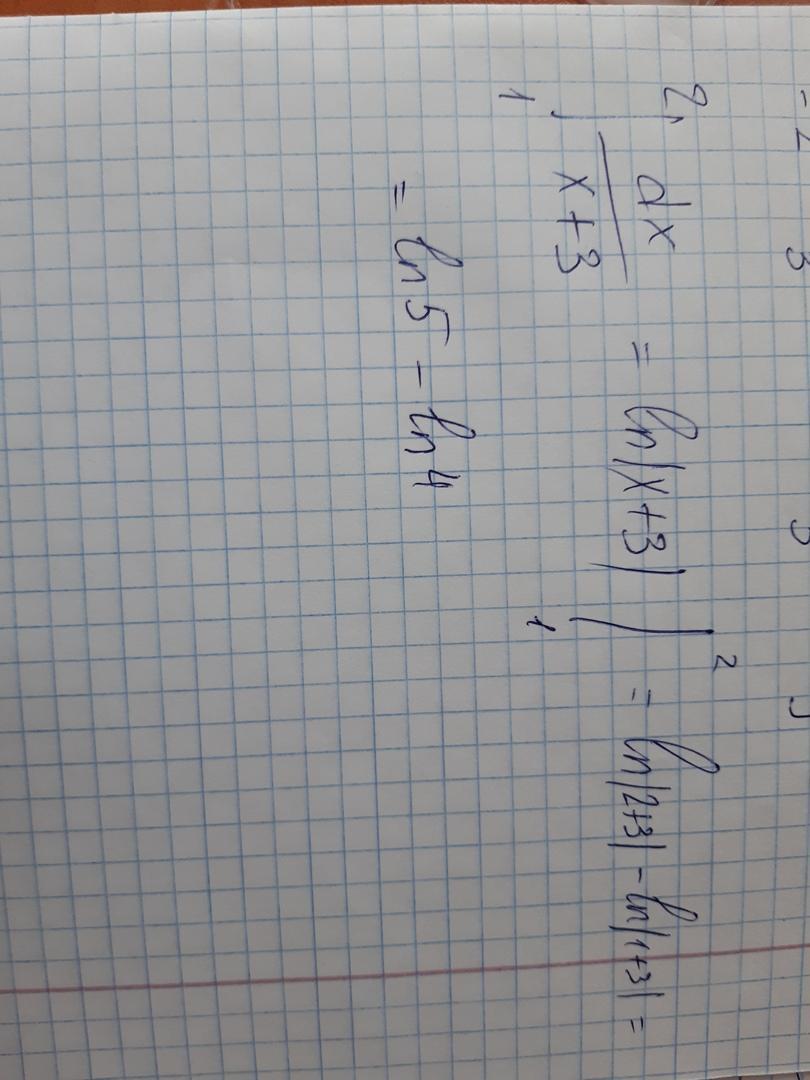 2
∫ dx/(x+3) = ln|x+3| |₁² = ln|2+3| - ln|1+3| =
1
= ln5 - ln4